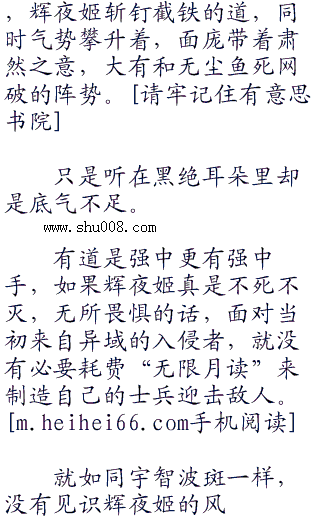 ，辉夜姬斩钉截铁的道，同
时气势攀升着，面庞带着肃
然之意，大有和无尘鱼死网
破的阵势。[请牢记住有意思
书院]
只是听在黑绝耳朵里却
是底气不足。
www.shu008.com
有道是强中更有强中
手，如果辉夜姬真是不死不
灭，无所畏惧的话，面对当
初来自异域的入侵者，就没
有必要耗费“无限月读”来
制造自己的士兵迎击敌人。
[m.heihei66.com手机阅读]
就如同宇智波斑一样，
没有见识辉夜姬的风